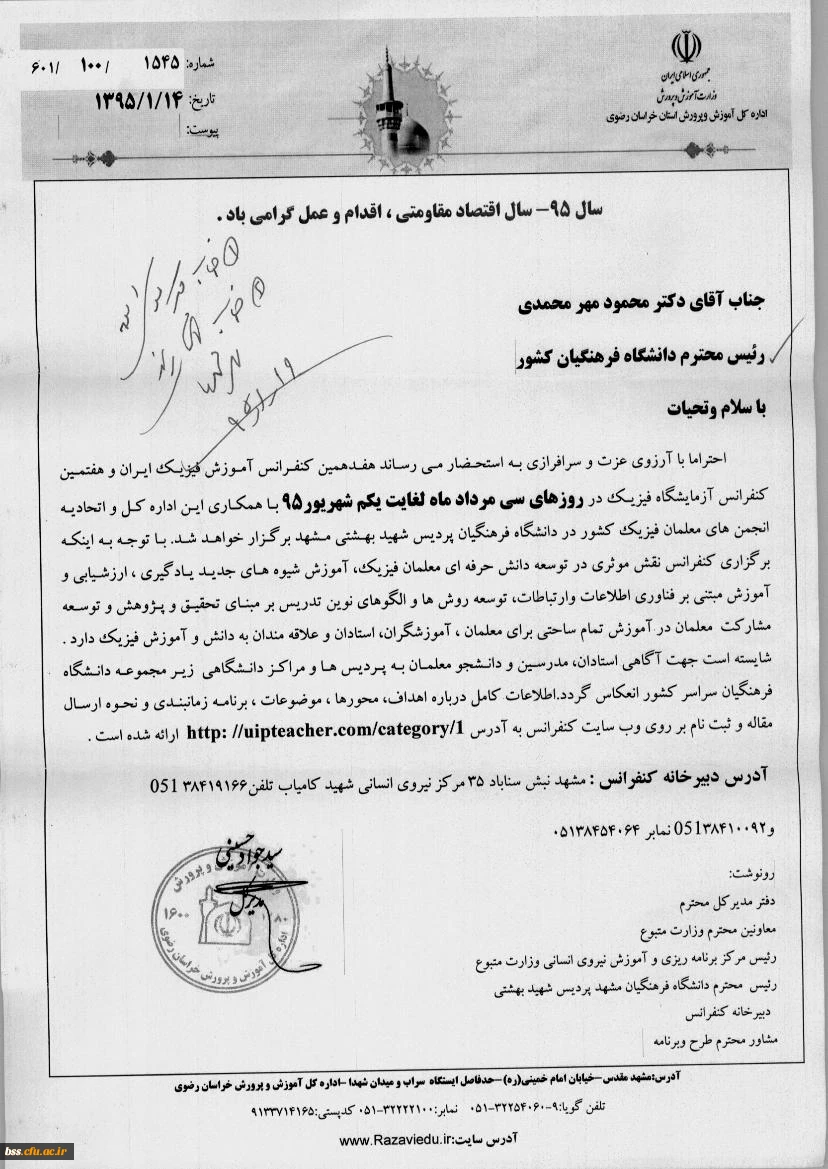 جمهوری اسلامی ایران
وزارت آموزش و پرورش
اداره کل آموزش وپرورش استان خراسان رضوی
شماره: ۱۵۴۵ /۱۰۰ /۶۰۱
تاریخ: ۱۳۹۵/۱/۱۴
پیوست:
سال ۹۵- سال اقتصاد مقاومتی ، اقدام و عمل گرامی باد .
جناب آقای دکتر محمود مهر محمدی
رئیس محترم دانشگاه فرهنگیان کشور
با سلام وتحیات
احتراما با آرزوی عزت و سرافرازی به استحضار می رساند هفدهمین کنفرانس آموزش فیزیک ایران و هفتمین
کنفرانس آزمایشگاه فیزیک در روزهای سی مرداد ماه لغایت یکم شهریور۹۵ با همکاری این اداره کل و اتحادیه
انجمن های معلمان فیزیک کشور در دانشگاه فرهنگیان پردیس شهید بهشتی مشهد برگزار خواهد شد. با توجه به اینکه
برگزاری کنفرانس نقش موثری در توسعه دانش حرفه ای معلمان فیزیک، آموزش شیوه های جدید یادگیری ، ارزشیابی و
آموزش مبتنی بر فناوری اطلاعات وارتباطات، توسعه روش ها و الگوهای نوین تدریس بر مبنای تحقیق و پژوهش و توسعه
مشارکت معلمان در آموزش تمام ساحتی برای معلمان ، آموزشگران، استادان و علاقه مندان به دانش و آموزش فیزیک دارد .
شایسته است جهت آگاهی استادان، مدرسین و دانشجو معلمان به پردیس ها و مراکز دانشگاهی زیر مجموعه دانشگاه
فرهنگیان سراسر کشور انعکاس گردد.اطلاعات کامل درباره اهداف، محورها ، موضوعات ، برنامه زمانبندی و نحوه ارسال
مقاله و ثبت نام بر روی وب سایت کنفرانس به آدرس http: //uipteacher.com/category/1 ارائه شده است .
آدرس دبیرخانه کنفرانس : مشهد نبش سناباد ۳۵ مرکز نیروی انسانی شهید کامیاب تلفن۳۸۴۱۹۱۶۶ 051
و۰۵۱۳۸۴۱۰۰۹۲ نمابر ۰۵۱۳۸۴۵۴۰۶۴
سید جواد حسینی
مدیر کل
رونوشت:
دفتر مدیر کل محترم
معاونین محترم وزارت متبوع
رئیس مرکز برنامه ریزی و آموزش نیروی انسانی وزارت متبوع
رئیس محترم دانشگاه فرهنگیان مشهد پردیس شهید بهشتی
دبیرخانه کنفرانس
مشاور محترم طرح وبرنامه
آدرس:مشهد مقدس-خیابان امام خمینی(ره) -حدفاصل ایستگاه سراب و میدان شهدا -اداره کل آموزش و پرورش خراسان رضوی
تلفن گویا:۹-۳۲۲۵۴۰۶۰-۰۵۱ نمابر:۳۲۲۲۲۱۰۰-۰۵۱ کدپستی:۹۱۳۳۷۱۴۱۶۵
آدرس سایت:www.Razaviedu.ir
bss.cfu.ac.ir